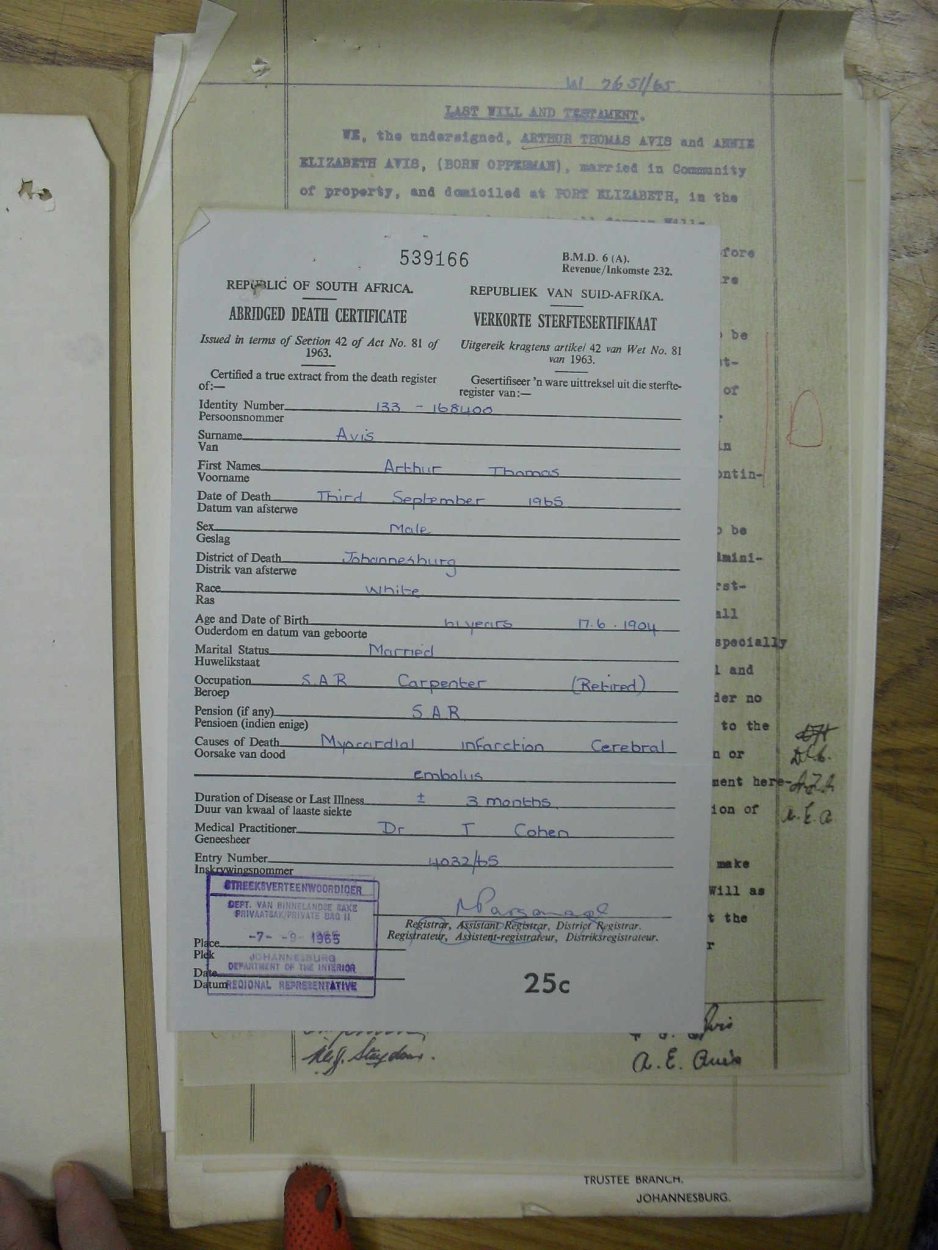 W 2651/65
LAST WILL AND TESTAMENT.
WE, the undersigned, ARTHUR THOMAS AVIS and ANNIE
ELIZABETH AVIS, (BORN OPPERMAN), married in Community
of property, and domiciled at PORT ELIZABETH, in the
539166
B.M.D. 6 (A).
Revenue/Inkomste 232.
REPUBLIC OF SOUTH AFRICA.
REPUBLIEK VAN SUID-AFRIKA.
ABRIDGED DEATH CERTIFICATE
VERKORTE STERFTESERTIFIKAAT
Issued in terms of Section 42 of Act No. 81 of
1963.
Uitgereik kragtens artikel 42 van Wet No. 81
van 1963.
Certified a true extract from the death register
of:—
Gesertifiseer 'n ware uittreksel uit die sterfte-
register van:—
Identity Number 133 - 168400
Persoonsnommer
Surname Avis
Van
First Names Arthur Thomas
Voorname
Date of Death Third September 1965
Datum van afsterwe
Sex Male
Geslag
District of Death Johannesburg
Distrik van afsterwe
Race White
Ras
Age and Date of Birth 61 years 17.6.1904
Ouderdom en datum van geboorte
Marital Status Married
Huwelikstaat
Occupation S.A.R Carpenter (Retired)
Beroep
Pension (if any) S A R
Pensioen (indien enige)
Causes of Death Myocardial infarction Cerebral
Oorsake van dood
embolus
Duration of Disease or Last Illness ± 3 months
Duur van kwaal of laaste siekte
Medical Practitioner Dr T Cohen
Geneesheer
Entry Number 4032/65
Inskrywingsnommer
STREEKSVERTEENWOORDIGER
DEPT. VAN BINNELANDSE SAKE
PRIVAATSAK/PRIVATE BAG 11
-7- -9- 1965
JOHANNESBURG
DEPARTMENT OF THE INTERIOR
REGIONAL REPRESENTATIVE
Registrar, Assistant Registrar, District Registrar.
Registrateur, Assistent-registrateur, Distriksregistrateur.
Place
Plek
Date
Datum
25c
fore
be
of
ontin-
be
dmini-
all
specially
l and
der no
to the
n or
ment here-
ion of
make
Will as
t the
A.T.A
A. E. A.
A. E. Avis
TRUSTEE BRANCH.
JOHANNESBURG.